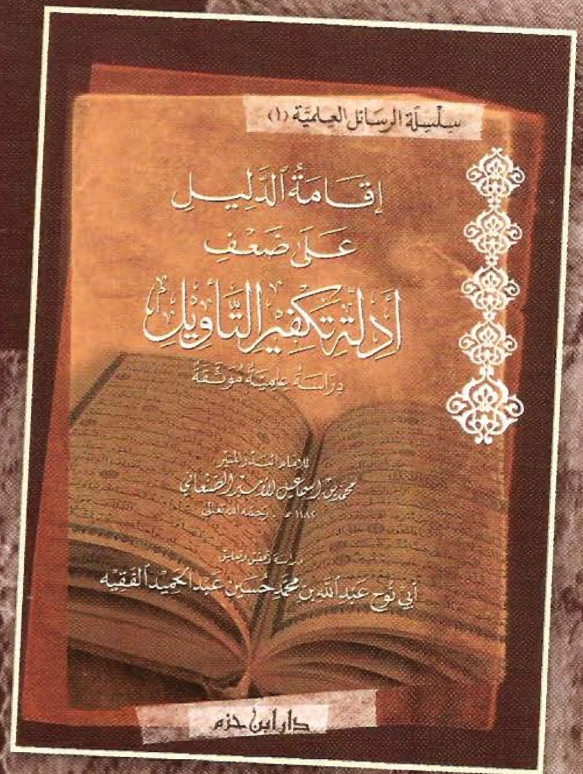 سلسلة الرسائل العلمية (١)
إقامة الدليل
على ضعف
أدلة تكفير التأويل
دراسة علمية موثقة
للإمام البدر المنير
محمد بن إسماعيل الأمير الصنعاني
١١٨٢ هـ . رحمه الله تعالى
دراسة وتحقيق وتعليق
أبي نوح عبد الله بن محمد حسين عبد الحميد الفقيه
دار ابن حزم